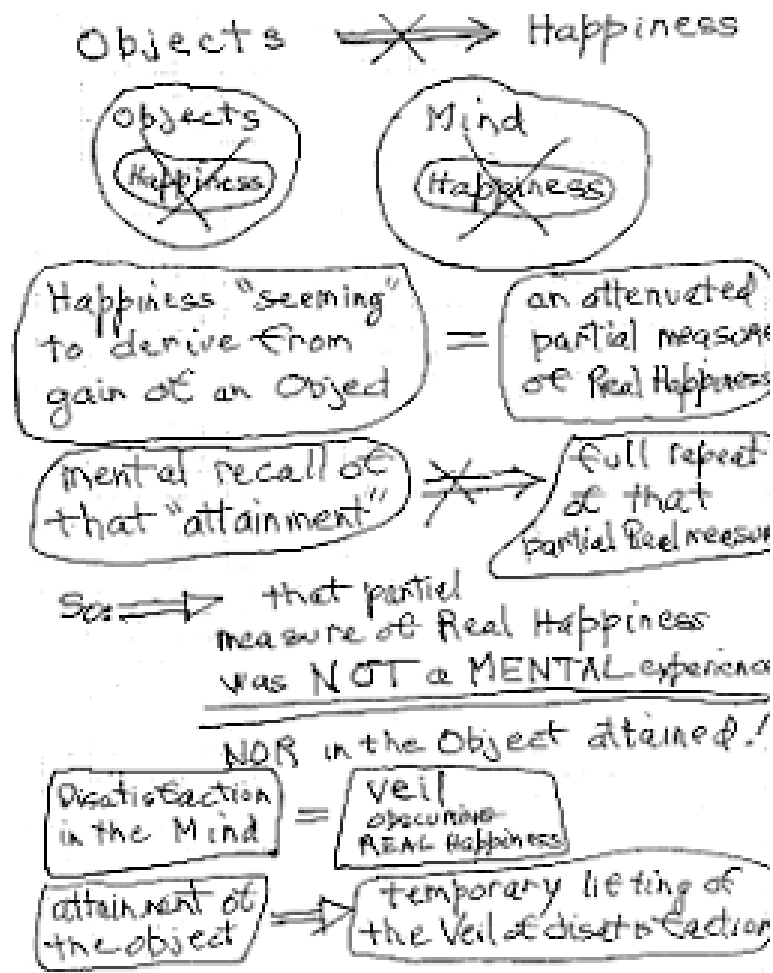 Objects Happiness
Objects
Happiness
Mind
Happiness
Happiness "seeming"
to derive from
gain of an Object
=
an attenuated
partial measure
of Real Happiness
mental recall of
that "attainment"
full repeat
of that
partial Real measure
So: that partial
measure of Real Happiness
was NOT a MENTAL experience
NOR in the Object attained!
Disatisfaction
in the Mind
=
veil
obscuring
REAL Happiness
attainment of
the object
temporary lifting of
the Veil of disatisfaction